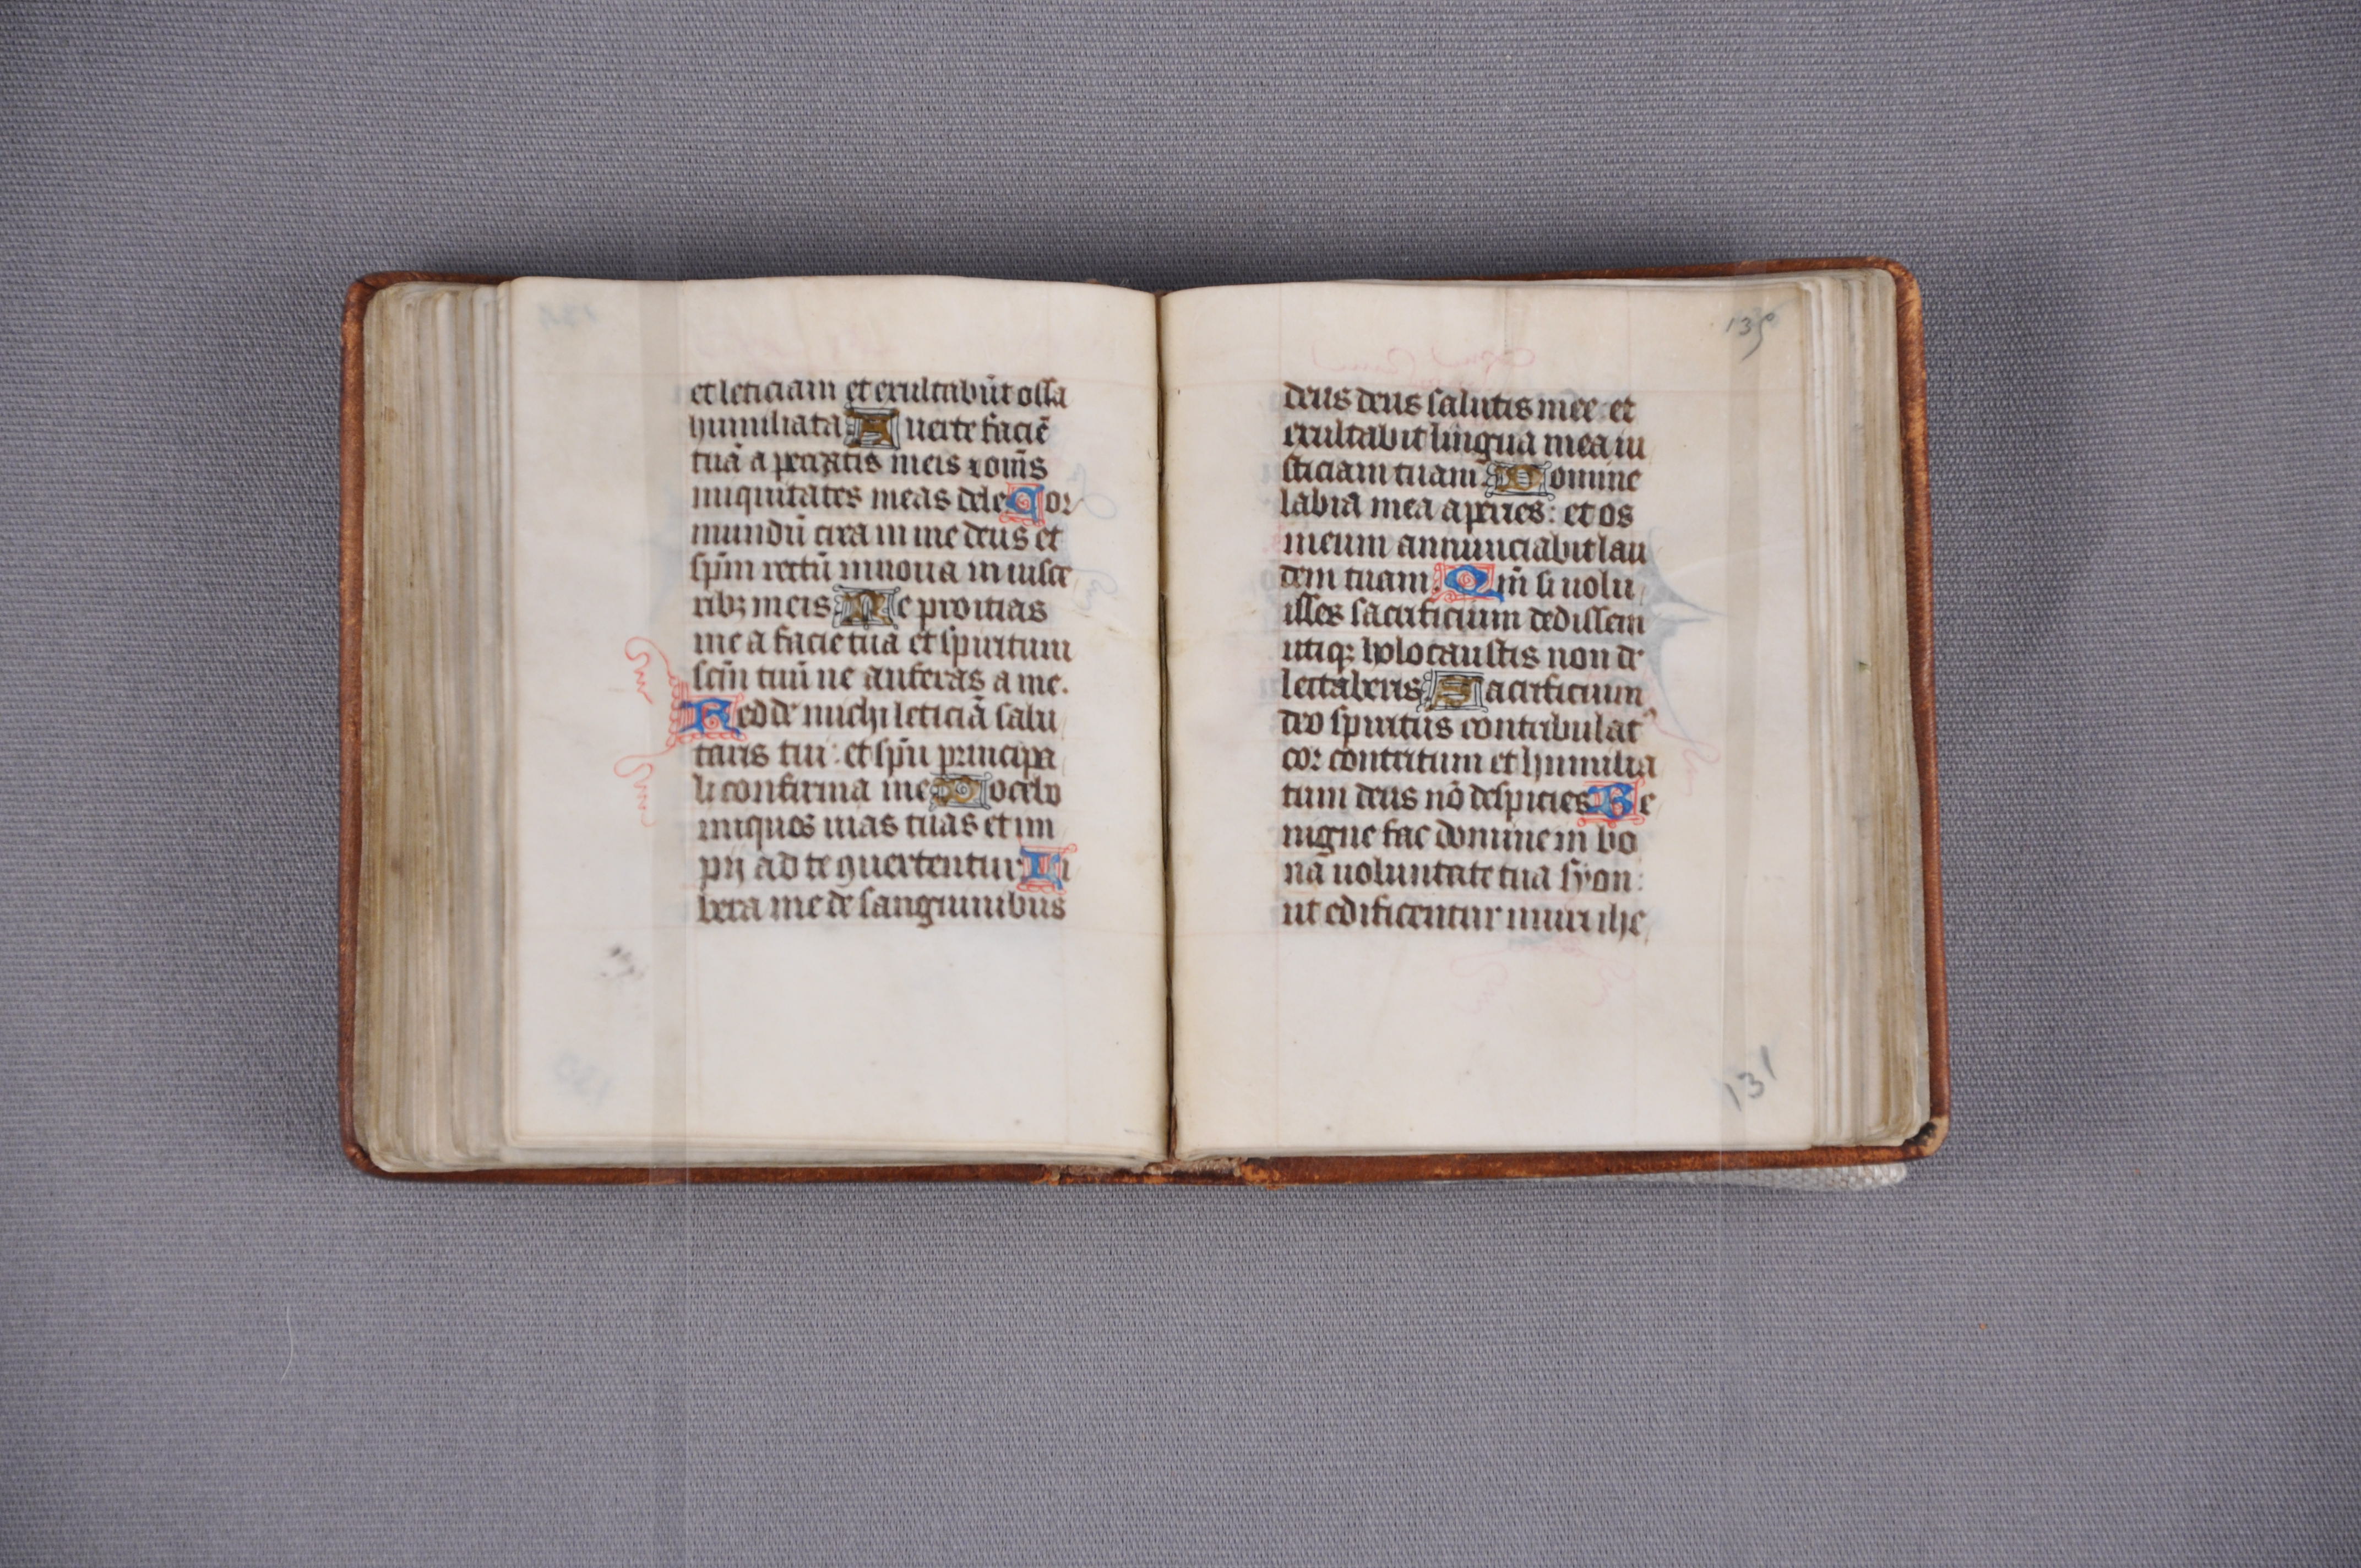 et leticiam et exultabūt ossa
humiliata Auerte faciē
tuā a peccatis meis ⁊ om̄s
iniquitates meas dele Cor
mundū crea in me deus et
sp̄m rectū innoua in uisce
ribꝫ meis Ne proicias
me a facie tua et spiritum
sc̄m tuū ne auferas a me.
Redde michi leticiā salu
taris tui: et sp̄u principa
li confirma me Docebo
iniquos uias tuas et im
pij ad te ꝯuertentur: Li
bera me de sanguinibus
135
deus deus salutis mee: et
exultabit lingua mea iu
sticiam tuam Domine
labia mea aperies: et os
meum annunciabit lau
dem tuam. Qm̄ si uolu
isses sacrificium dedissem
utiqꝫ holocaustis non de
lectaberis Sacrificium
deo spiritus contribulatꝰ
cor contritum et humilia
tum deus nō despicies Be
nigne fac domine in bo
na uoluntate tua syon:
ut edificentur muri ihe
131